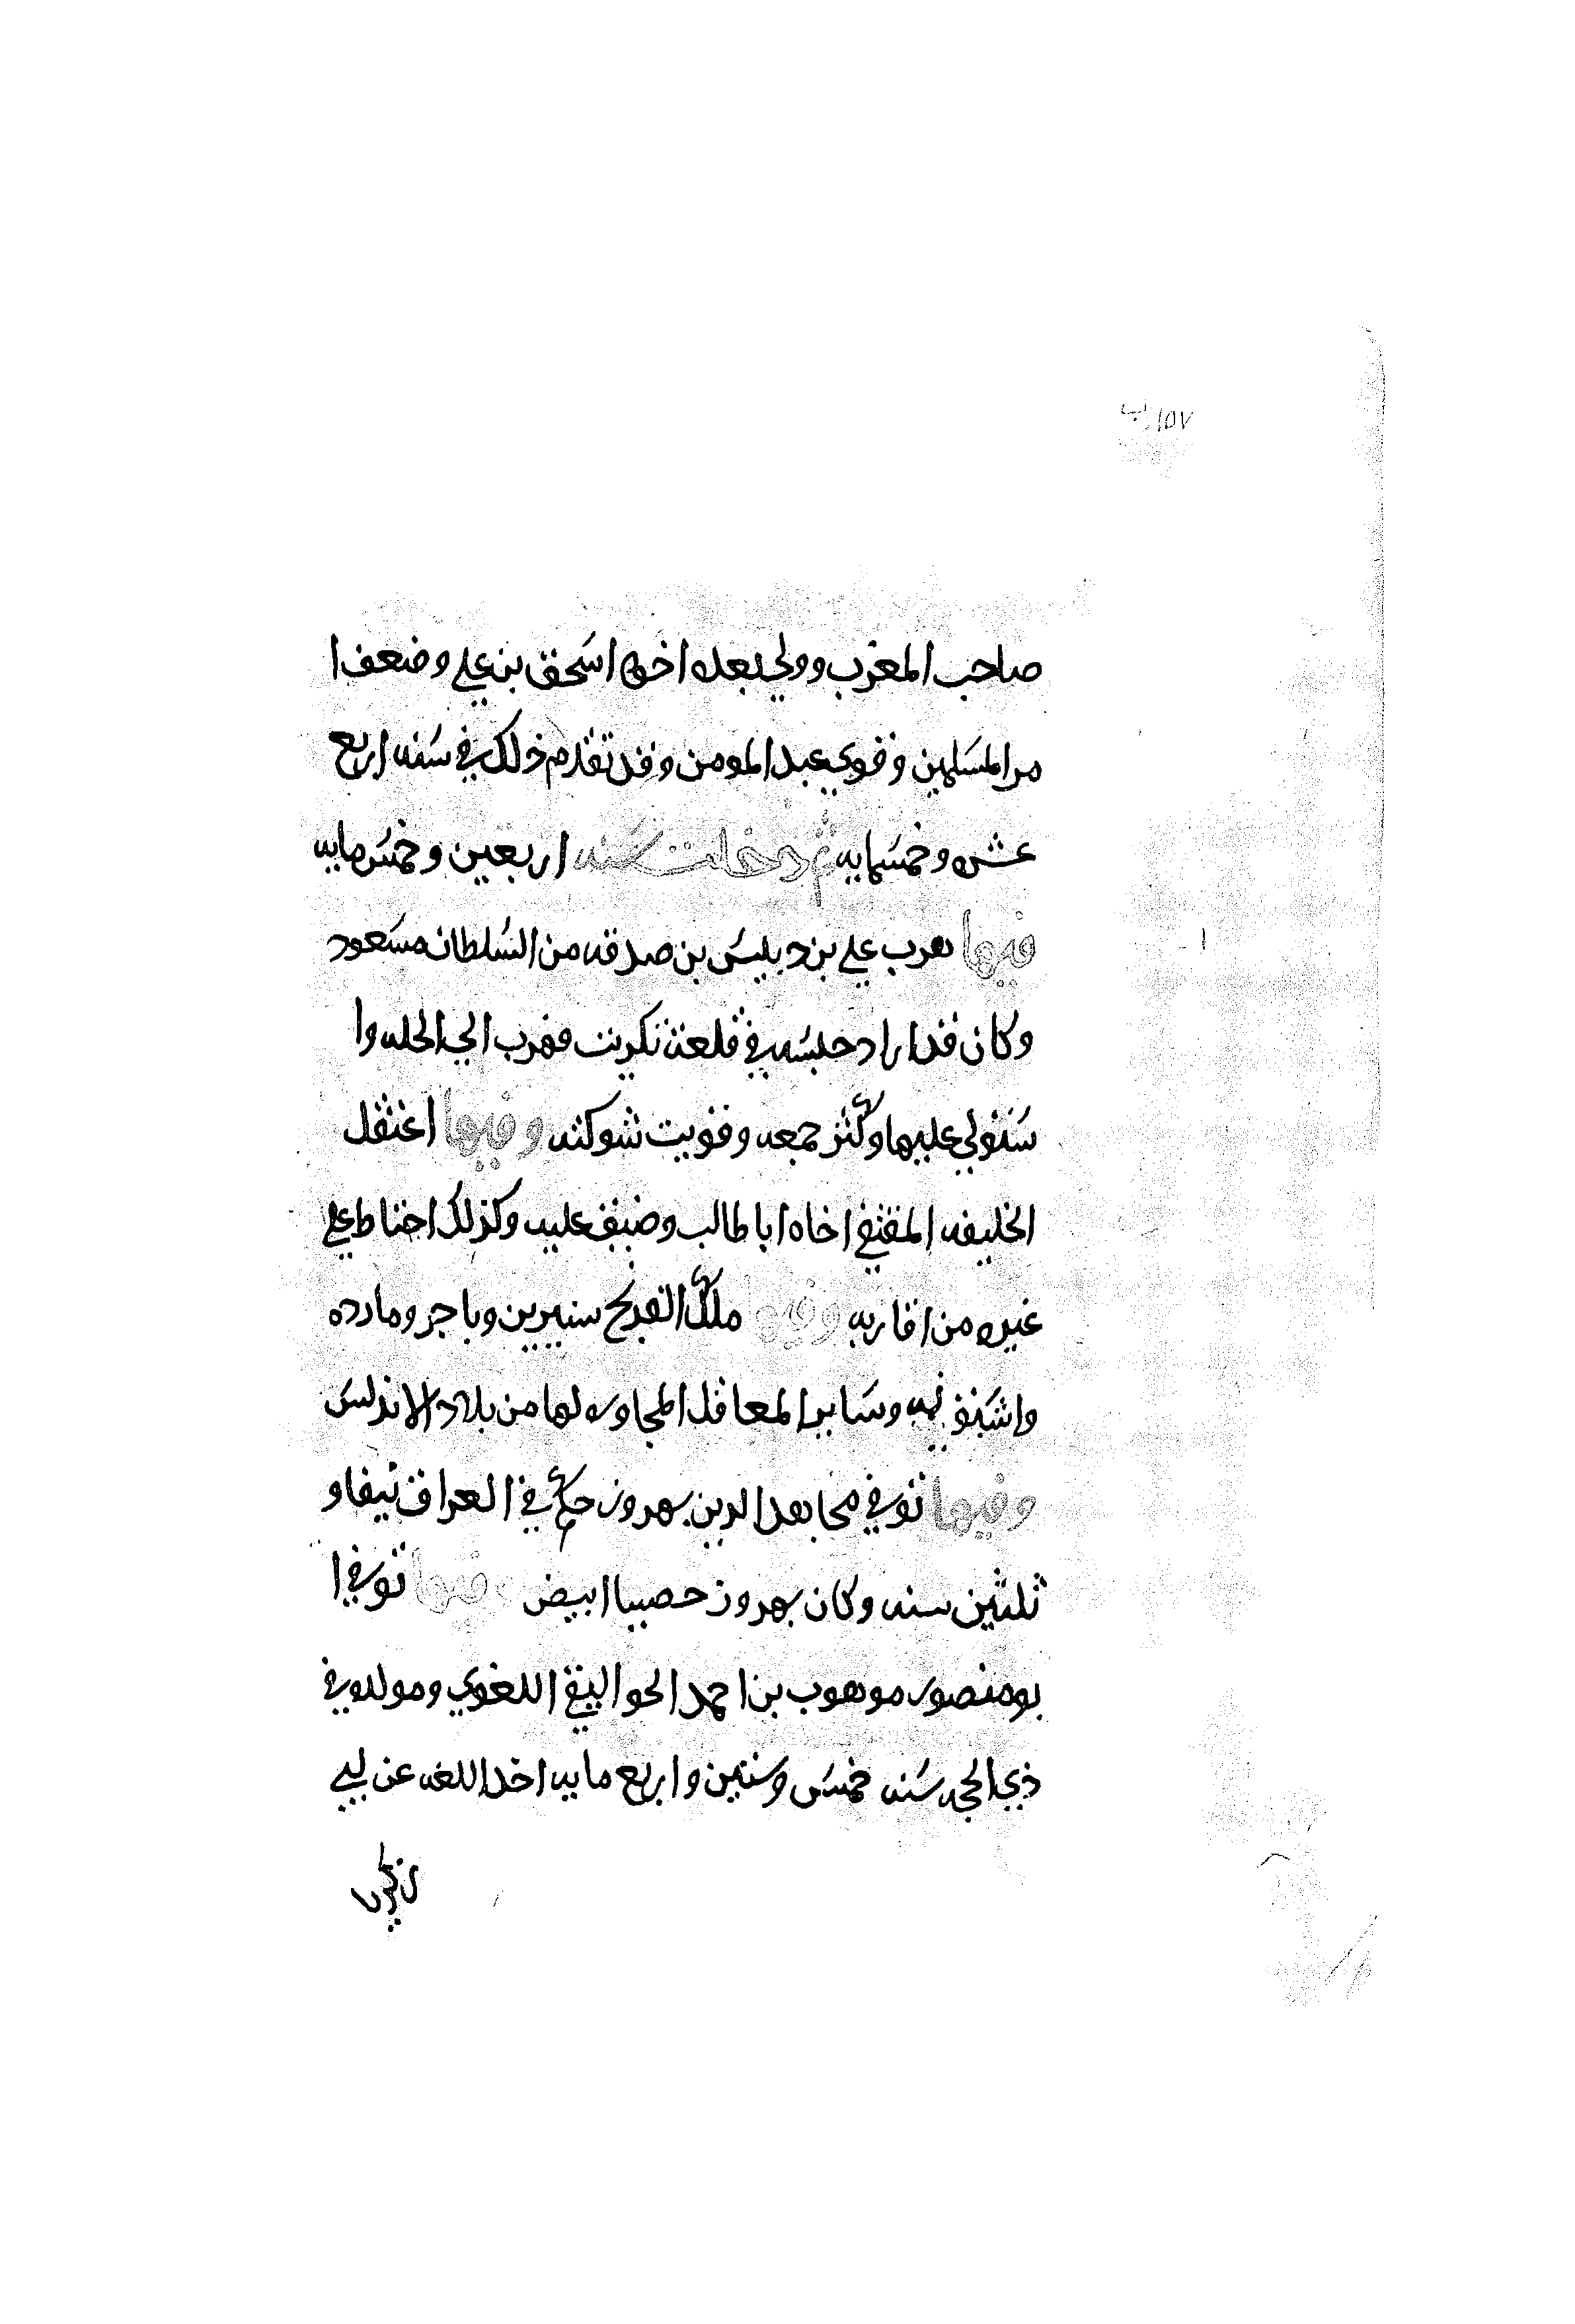 ١٥٧ ب
صاحب المغرب وولي بعده اخوه اسحق بن علي وضعف ا
مر المسلمين وقوي عبد المومن وقد تقدم ذلك في سنه اربع
عشره وخمسمايه ثم دخلت سنه اربعين وخمس مايه
فيها هرب علي بن دبيس بن صدقه من السلطان مسعود
وكان قد اراد حبسه في قلعة تكريت فهرب الي الحله وا
ستولي عليها وكثر جمعه وقويت شوكته وفيها اعتقل
الخليفه المقتفي اخاه ابا طالب وضيق عليه وكذلك احتاط علي
غيره من اقاربه وفيها ملك الفرنج سنيرين وباجر ومارده
واشبونه وساير المعاقل المجاوره لها من بلاد الاندلس
وفيها توفي مجاهد الدين بهروز حكم في العراق نيفا و
ثلثين سنه وكان بهروز خصيا ابيض وفيها توفي ا
بو منصور موهوب بن احمد الجواليقي اللغوي ومولده في
ذي الحجه سنه خمس وستين واربع مايه اخذ اللغه عن ابي
زكريا